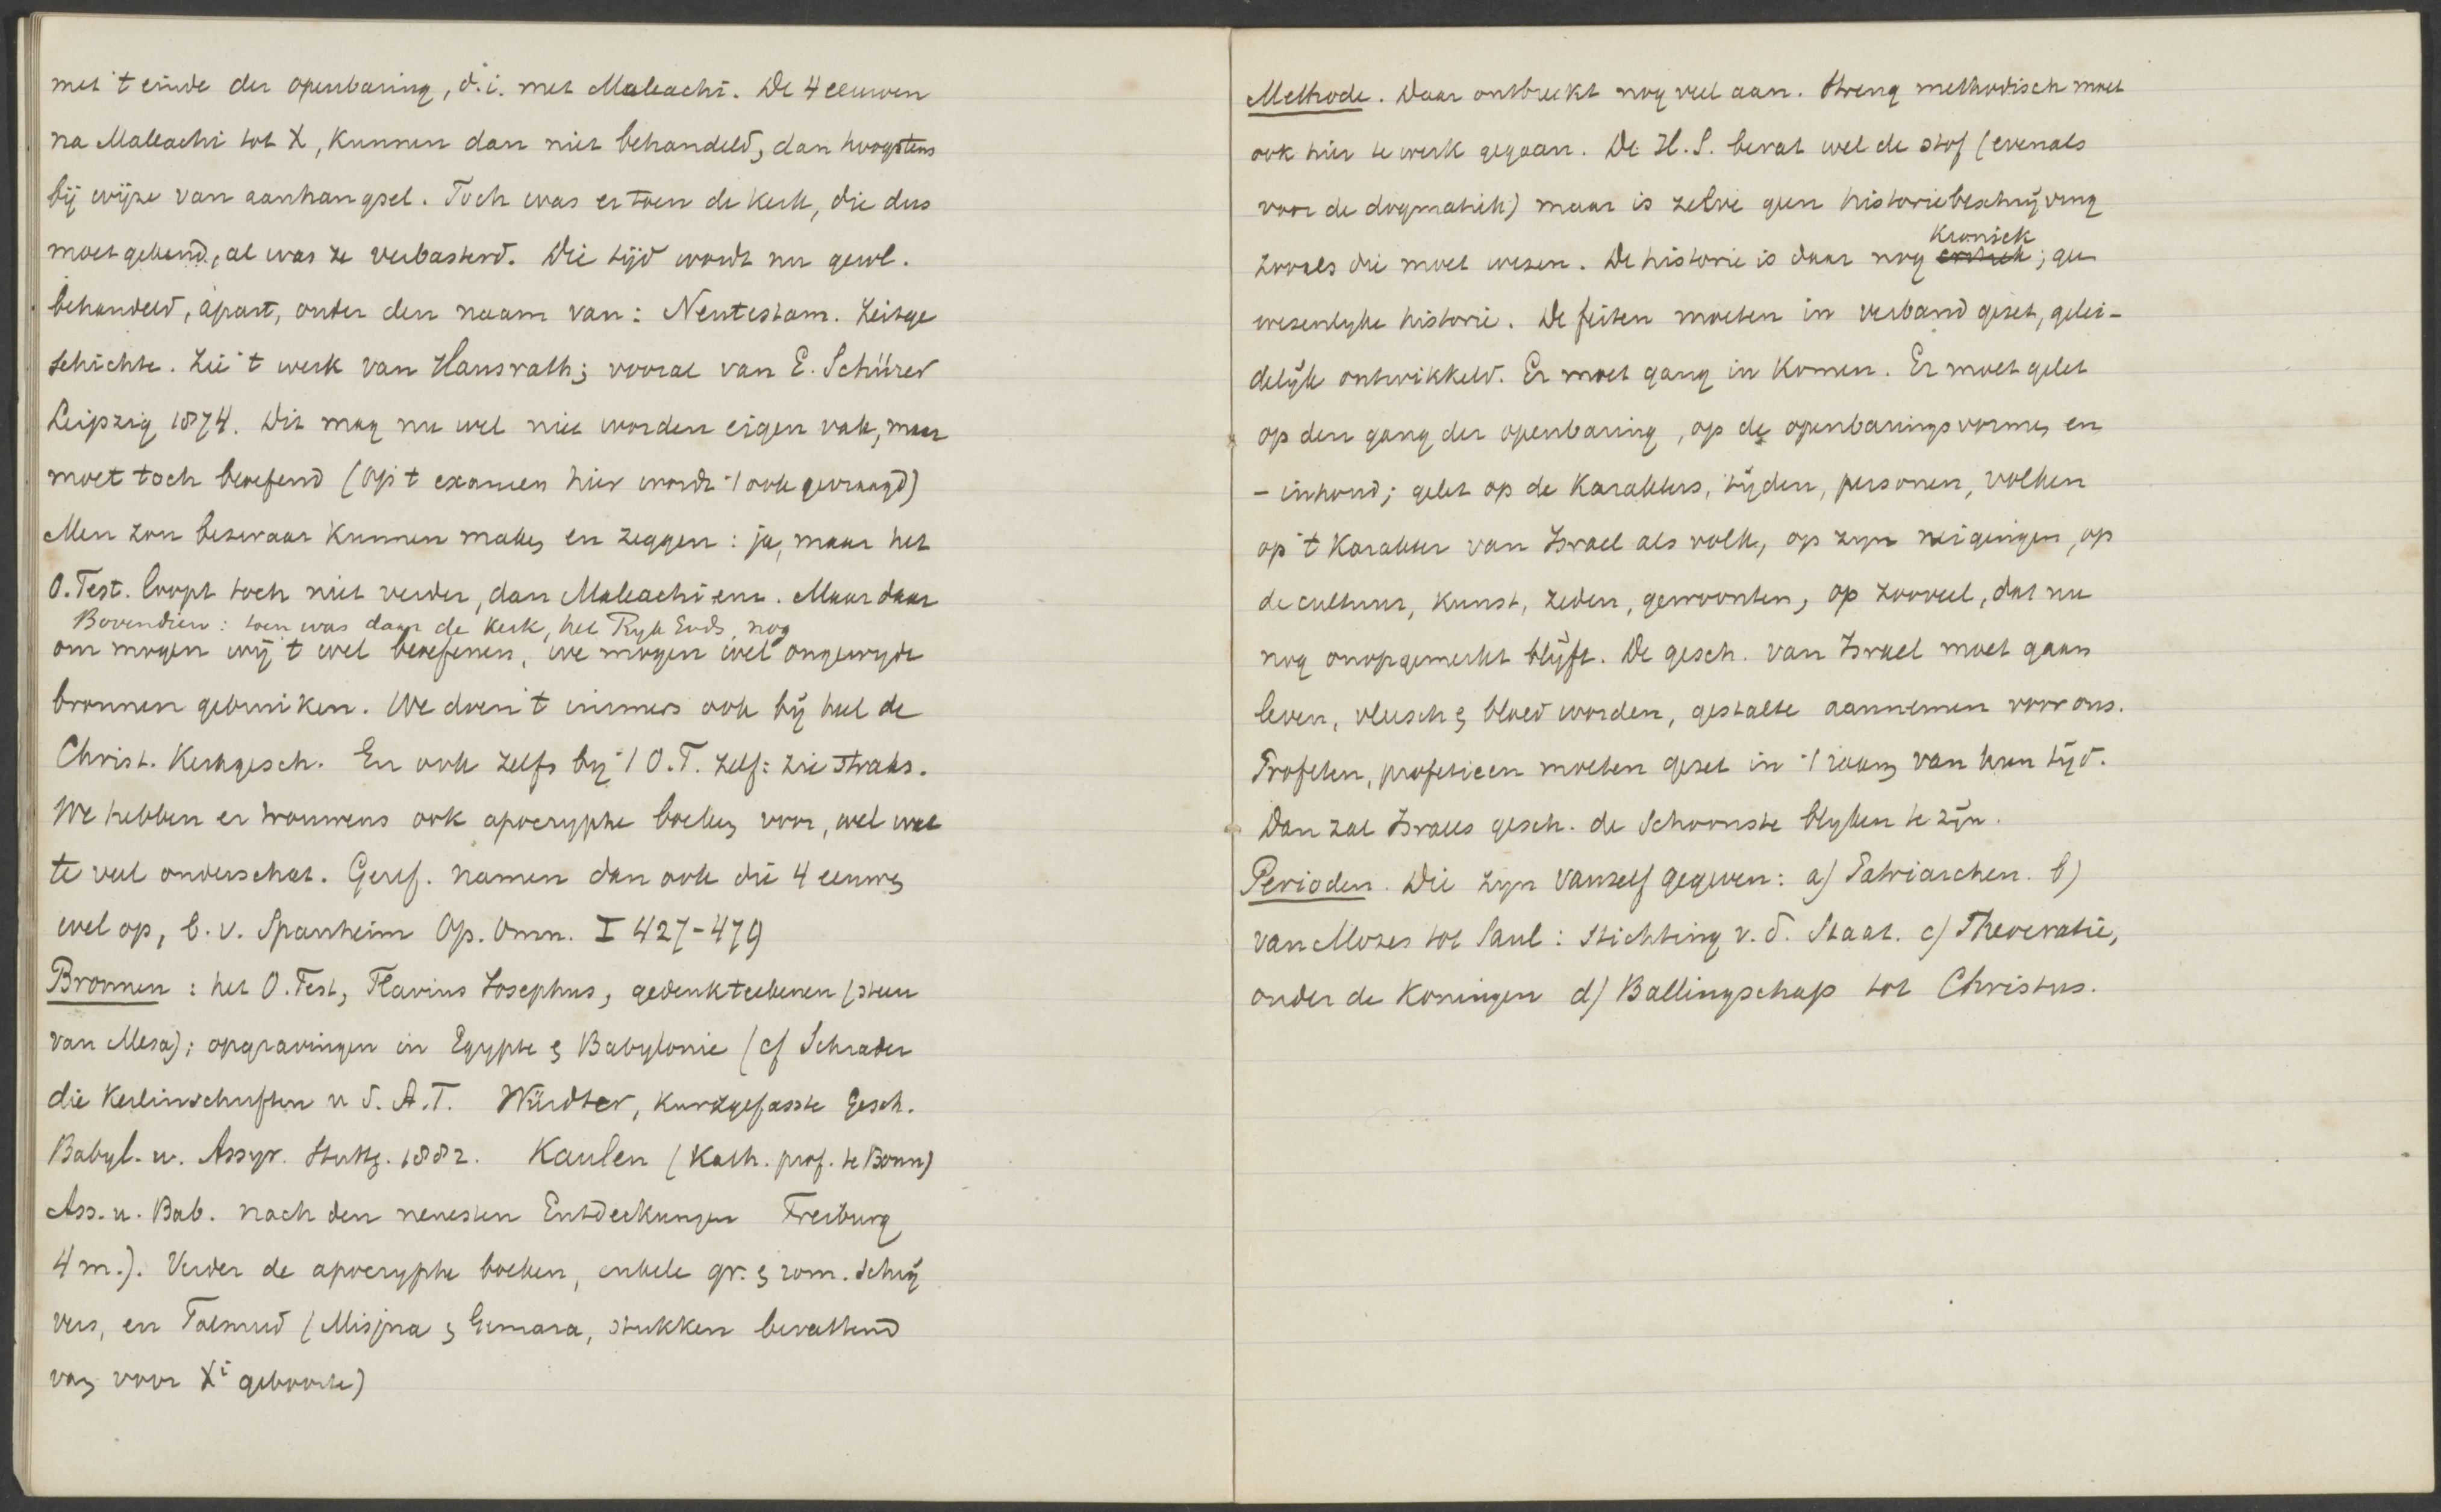 met 't einde der openbaring, d.i. met Maleachi. De 4 eeuwen
na Maleachi tot X, kunnen dan niet behandeld, dan hoogstens
bij wijze van aanhangsel. Toch was er toen de kerk, die dus
moet gekend, al was ze verbasterd. Die tijd wordt nu gewl.
behandeld, apart, onder den naam van: Neutestam. Zeitge
schichte. Zie 't werk van Hausrath; vooral van E. Schürer
Leipzig 1874. Dit mag nu wel niet worden eigen vak, maar
moet toch beoefend (op 't examen hier wordt 't ook gevraagd)
Men zou bezwaar kunnen maken en zeggen: ja, maar het
O. Test. loopt toch niet verder, dan Maleachi enz. Maar daar
Bovendien: toen was daar de kerk, het Ryk Gods, nog
om mogen wij 't wel beoefenen, we mogen wel ongewyde
bronnen gebruiken. We doen 't immers ook bij heel de
Christ. Kerkgesch. En ook zelfs by 't O.T. zelf: zie straks.
We hebben er trouwens ook apocryphe boeken voor, wel wat
te veel onderschat. Geref. namen dan ook die 4 eeuwen
wel op, b.v. Spanheim Op. Omn. I 427-479
Bronnen: het O. Test, Flavius Josephus, gedenkteekenen (steen
van Mesa); opgravingen in Egypte & Babylonie (cf Schrader
die Keilinschriften u d. A.T. Mürdter, kurzgefasste Gesch.
Babyl. u. Assyr. Stuttg. 1882. Kaulen (Kath. prof. te Bonn)
Ass. u. Bab. nach den neuesten Entdeckungen Freiburg
4 m.). Verder de apocryphe boeken, enkele gr. & rom. schrij
vers, en Talmud (Misjna & Gemara, stukken bevattend
van voor Xi geboorte)
Methode. Daar ontbreekt nog veel aan. Streng methodisch moet
ook hier te werk gegaan. De H.S. bevat wel de stof (evenals
voor de dogmatiek) maar is zelve geen historiebeschrijving
kroniek
zooals die moet wezen. De historie is daar nog; geen
wezenlyke historie. De feiten moeten in verband gezet, gelei-
delijk ontwikkeld. Er moet gang in komen. Er moet gelet
op den gang der openbaring, op de openbaringsvormen en
- inhoud; gelet op de karakters, tijden, personen, volken
op 't karakter van Israel als volk, op zyn neigingen, op
de cultuur, kunst, zeden, gewoonten, op zooveel, dat nu
nog onopgemerkt blijft. De gesch. van Israel moet gaan
leven, vleesch & bloed worden, gestalte aannemen voor ons.
Profeten, profetieen moeten gezet in 't raam van hun tijd.
Dan zal Israels gesch. de schoonste blyken te zijn.
Perioden. Die zyn vanzelf gegeven: a) Patriarchen. b)
van Mozes tot Saul: stichting v.d. Staat. c) Theocratie,
onder de koningen d) Ballingschap tot Christus.